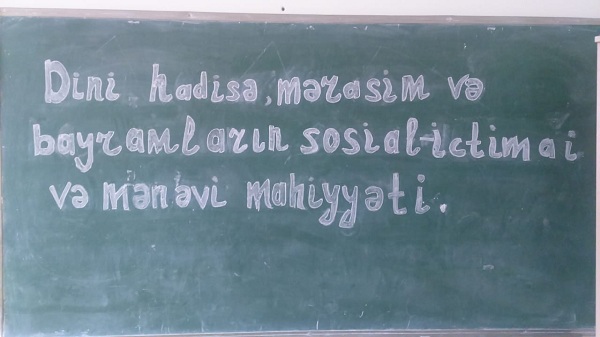 Dini hadisə, mərasim və
bayramların sosial-ictimai
və mənəvi mahiyyəti.